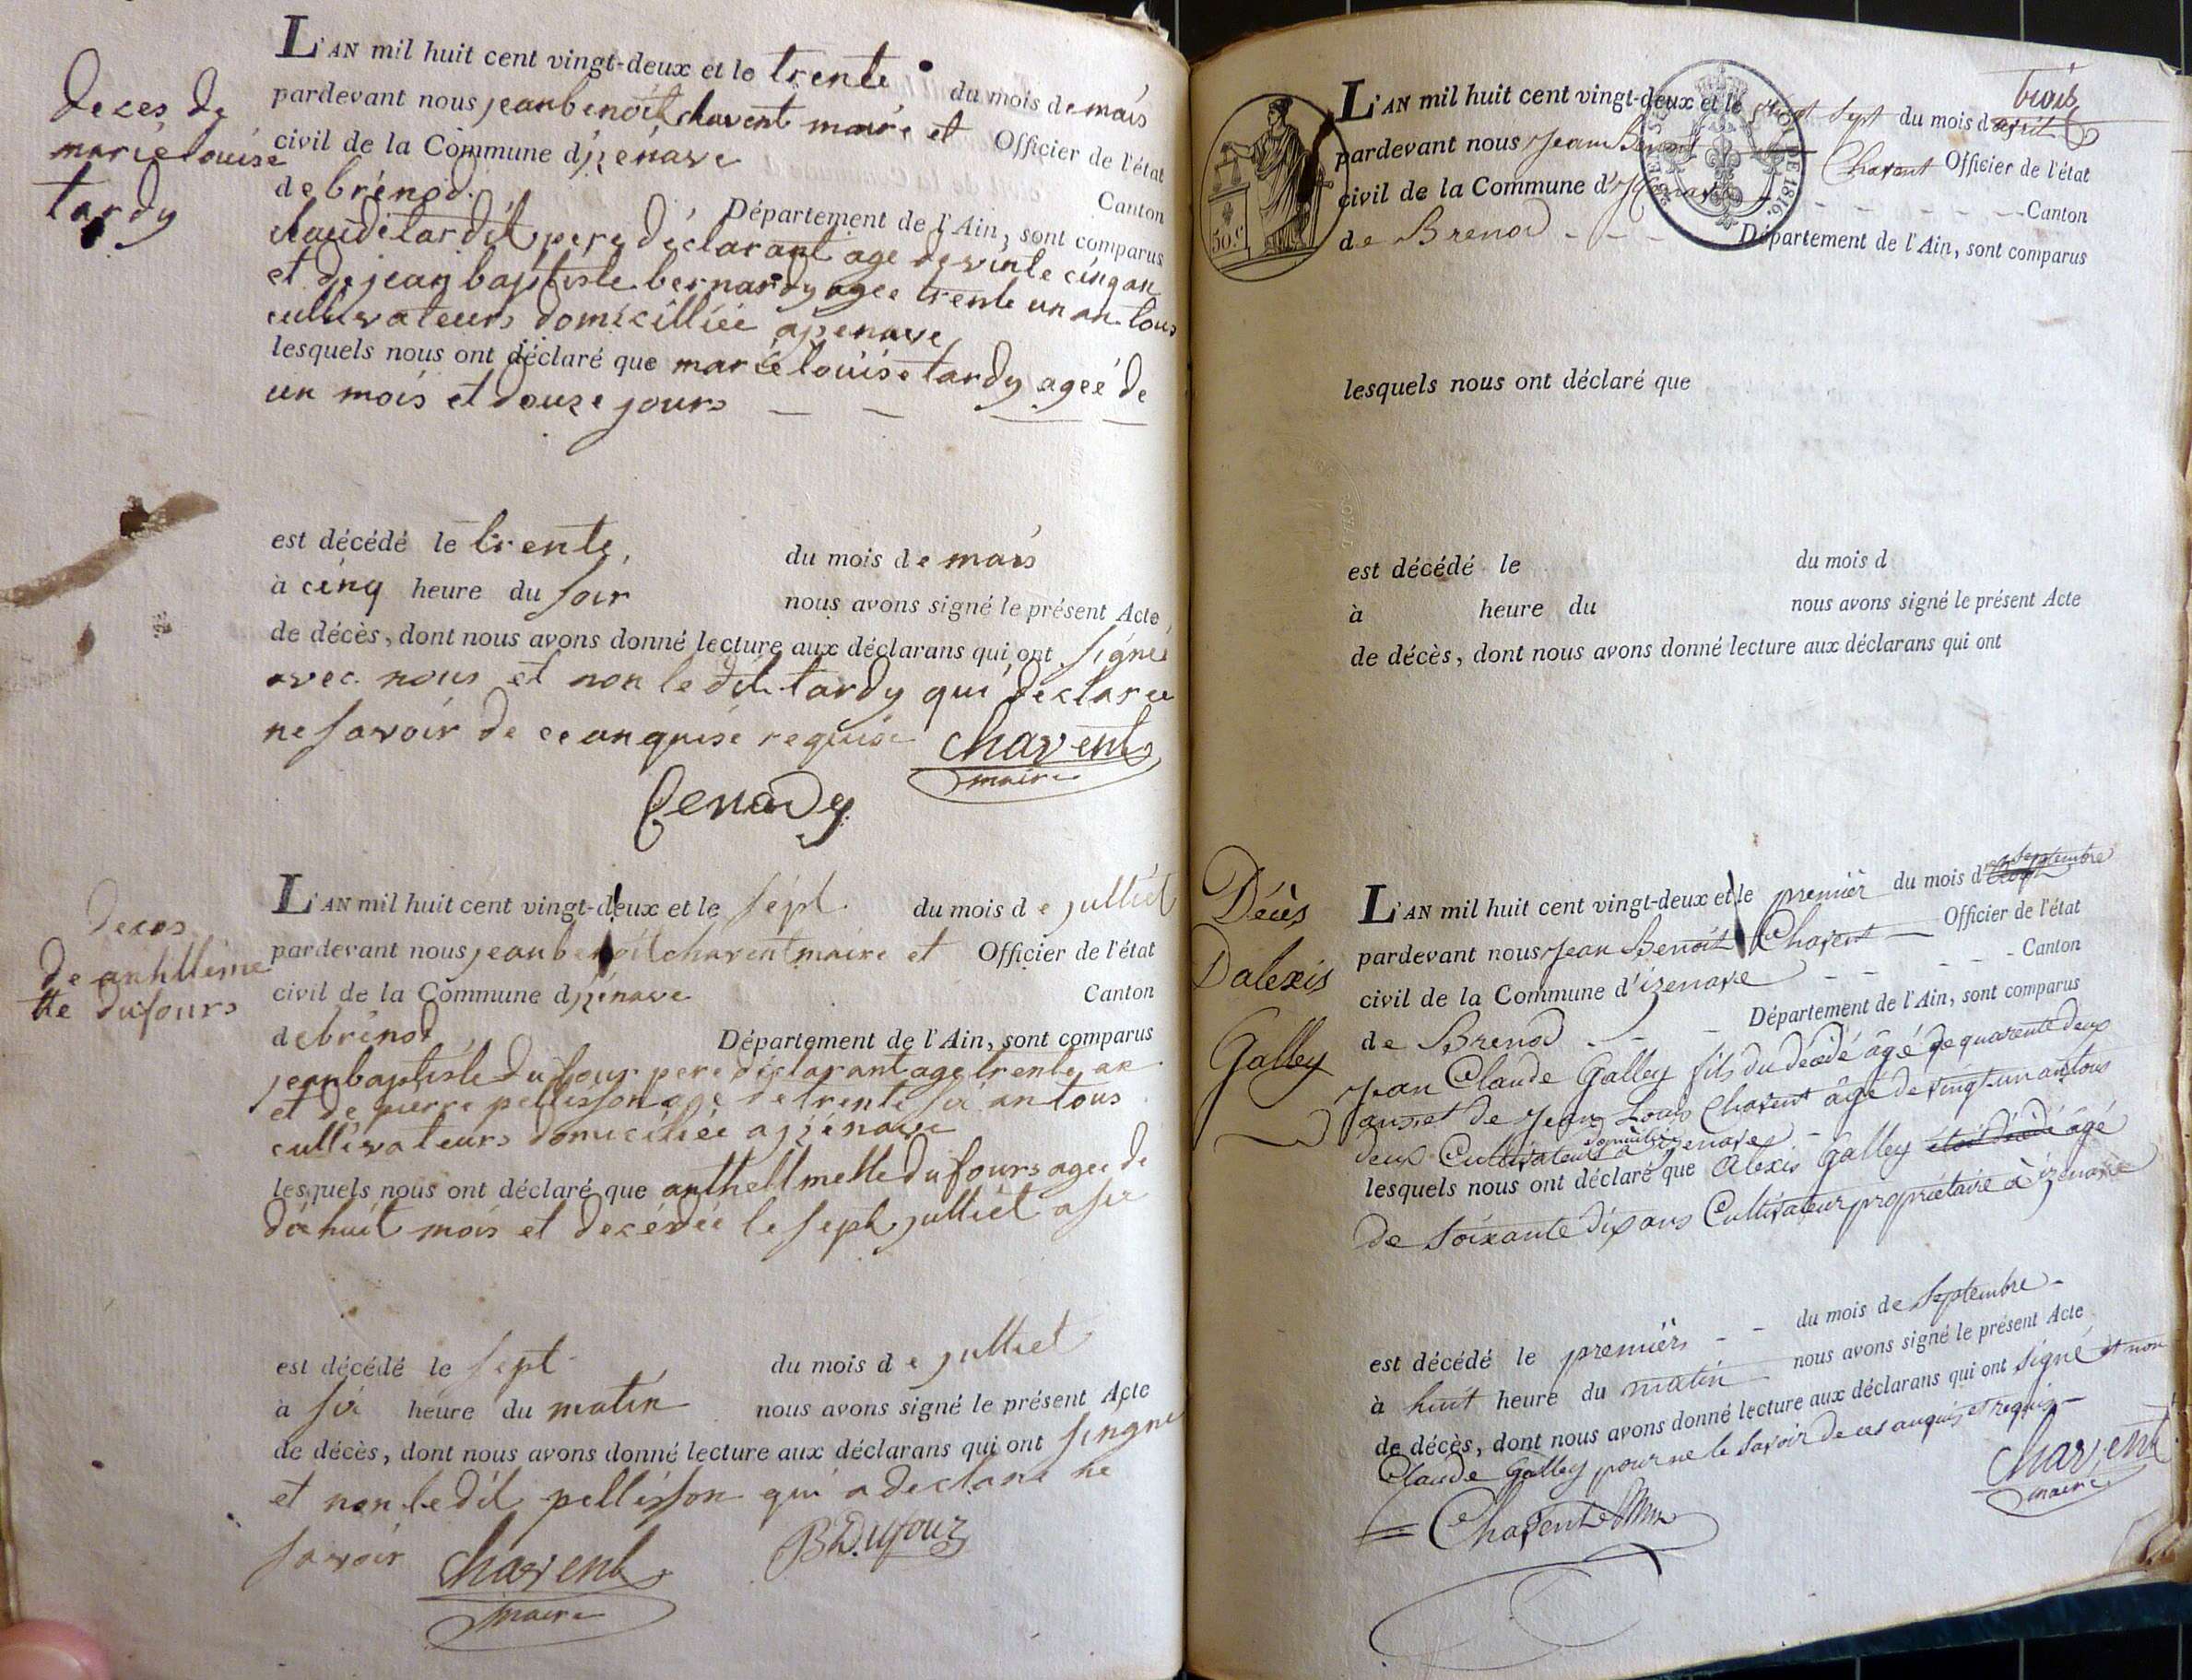 deces de
marie louise
tardy
L'AN mil huit cent vingt-deux et le trente du mois de mais
pardevant nous jean benoit chavent maire et Officier de l'état
civil de la Commune d izenave Canton
de brénod. Département de l'Ain, sont comparus
claude tardit, pere déclarant age de vinte cinq an
et de jean baptiste bernardy agee trente un an tous
cultivateurs domicilliée a izenave
lesquels nous ont déclaré que marie louise tardy ageé de
un mois et douze jours
est décédé le trente, du mois de mais
à cinq heure du soir nous avons signé le présent Acte
de décès, dont nous avons donné lecture aux déclarans qui ont signé
avec nous et non le dit tardy qui declaree
ne savoir de ce anquise requise chavent
maire
deces
de anthleme
tte dufours
L'AN mil huit cent vingt-deux et le sept du mois de julliet
pardevant nous jean benoit chavent maire et Officier de l'état
civil de la Commune d izénave Canton
de brénod Département de l'Ain, sont comparus
jean baptiste Dufour pere déclarant age trente an
et de pierre pellisson age de trente six an tous
cultivateurs domiciliée a izénave
lesquels nous ont déclaré que anthellmette dufours agee de
dix huit mois et decédée le sept julliet a six
est décédé le sept du mois de julliet
à six heure du matin nous avons signé le présent Acte
de décès, dont nous avons donné lecture aux déclarans qui ont singne
et non le dit pellisson qui a declare ne
savoir chavent BDufour
maire
50.c
1816.
trois
L'AN mil huit cent vingt-deux et le vingt sept du mois d avril
pardevant nous Jean Benoit Chavent Officier de l'état
civil de la Commune d'Izenave Canton
de Brenod Département de l'Ain, sont comparus
lesquels nous ont déclaré que
est décédé le du mois d
à heure du nous avons signé le présent Acte
de décès, dont nous avons donné lecture aux déclarans qui ont
Décès
Dalexis
Galley
septembre
L'AN mil huit cent vingt-deux et le premier du mois d'Août
pardevant nous Jean Benoit Chavent Officier de l'état
civil de la Commune d'izenave Canton
de Brenod Département de l'Ain, sont comparus
Jean Claude Galley fils du décédé âgé de quarente deux
ans, et de Jean Louis Chavent âgé de vingt-un an tous
domiciliés
deux Cultivateurs à izenave
lesquels nous ont déclaré que Alexis Galley étoit décédé âgé
de soixante dix ans Cultivateur propriétaire à izenave
est décédé le premier du mois de Septembre
à huit heure du matin nous avons signé le présent Acte
de décès, dont nous avons donné lecture aux déclarans qui ont signé et non
Claude Galley pour ne le savoir de ces anquis et requis
Chavent
maire
Chavent